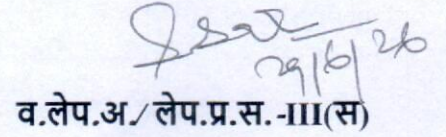 29/6/26
व.लेप.अ./ लेप.प्र.स.-III(स)